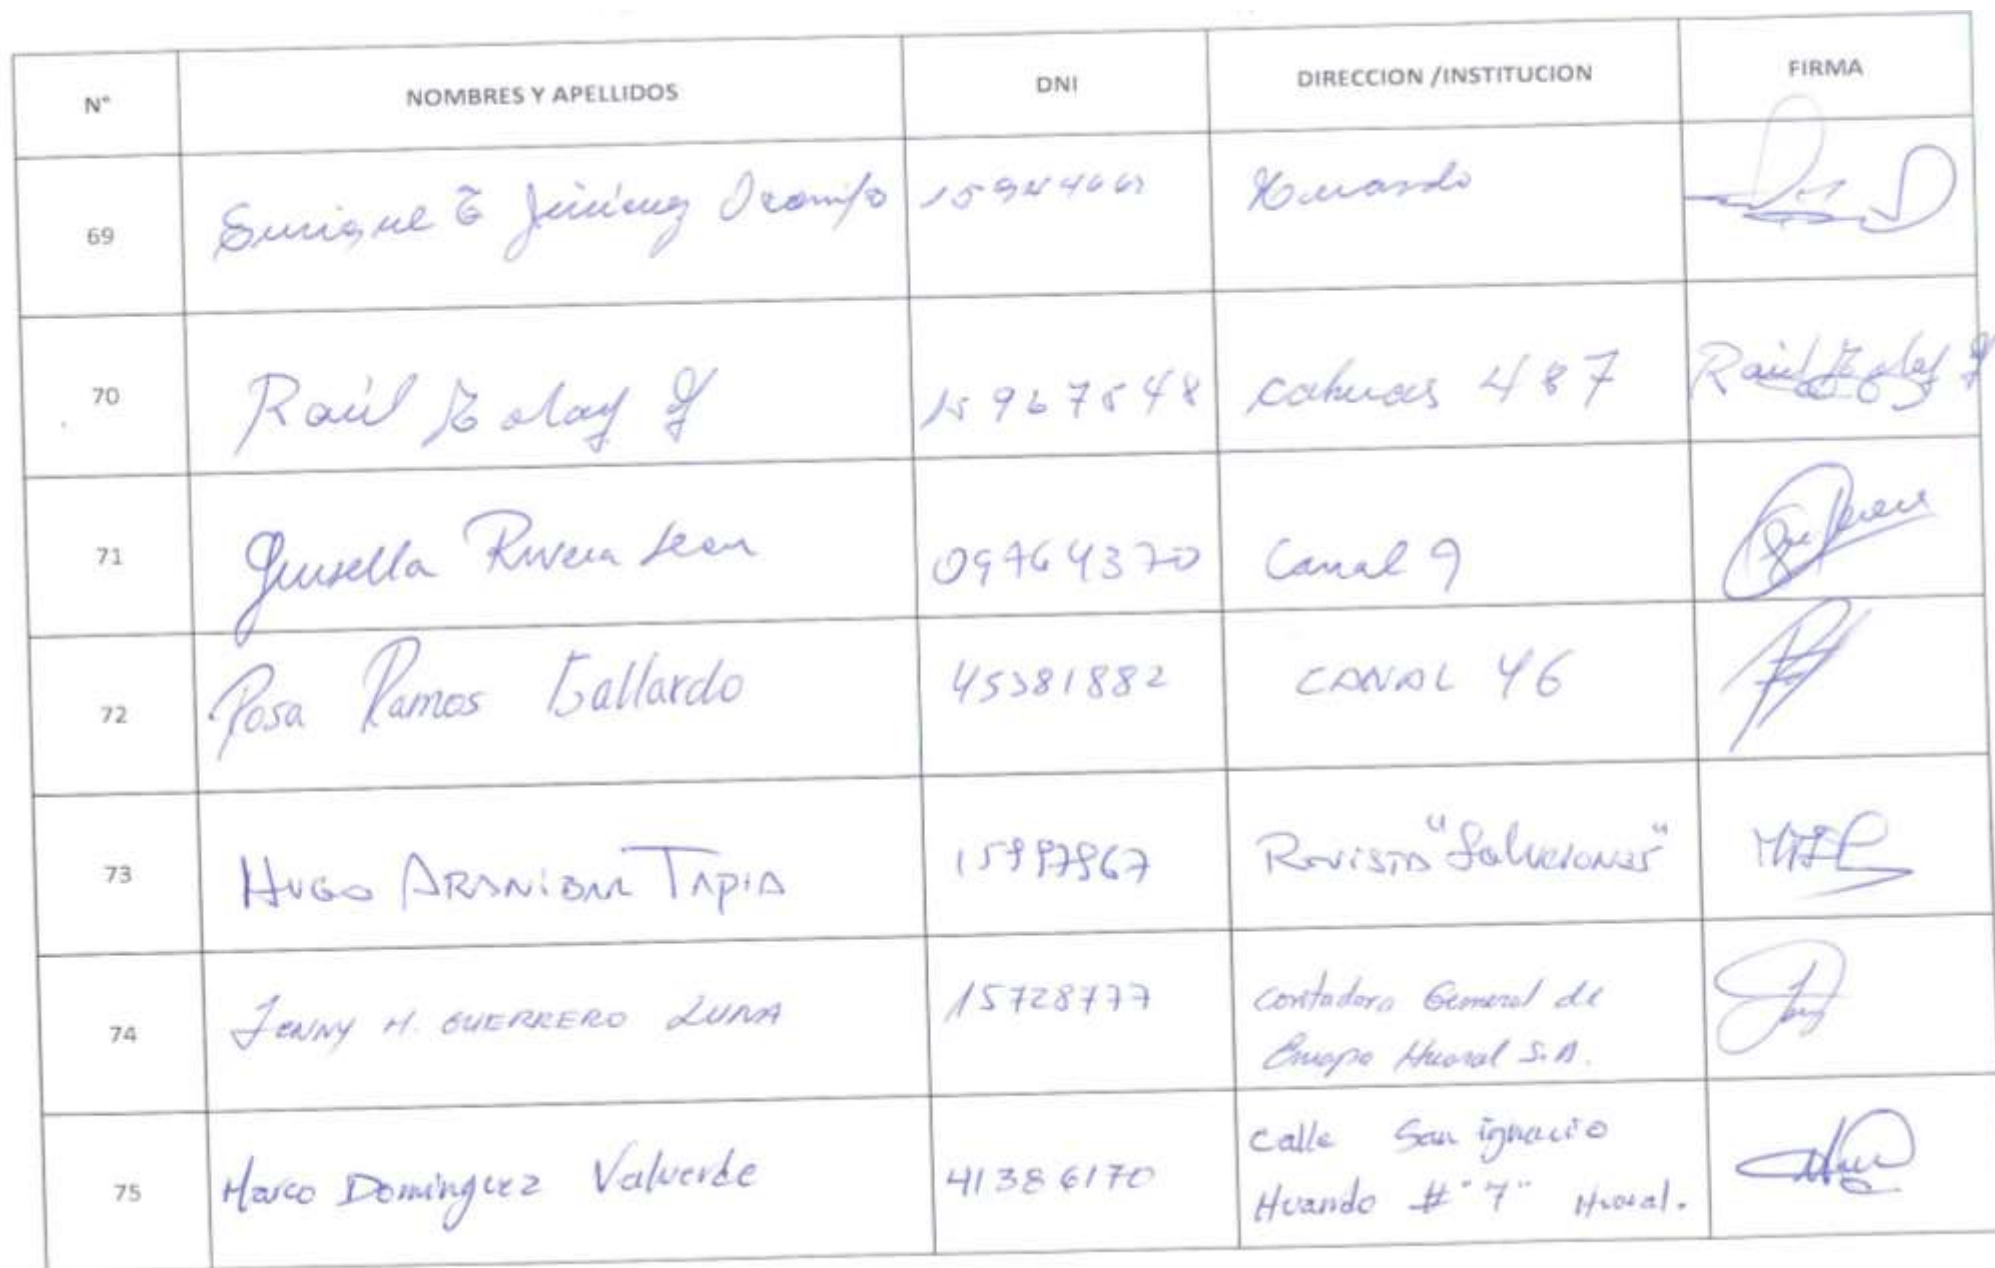 N° NOMBRES Y APELLIDOS DNI DIRECCION /INSTITUCION FIRMA
69 Enrique E Jiménez Ocampo Huando
70 Raúl 15967548 cahuas 487 Raúl
71 Giusella Rivera 09764370 Canal 9
72 Rosa Ramos Gallardo 45381882 CANAL 46
73 HUGO ARANIBAR TAPIA REVISTA "Soluciones"
74 JENNY H. GUERRERO LUNA 15728777 Contadora General de
Emapa Huaral S.A.
75 Marco Dominguez Valverde 41386170 calle San ignacio
Huando # "7" Huaral.